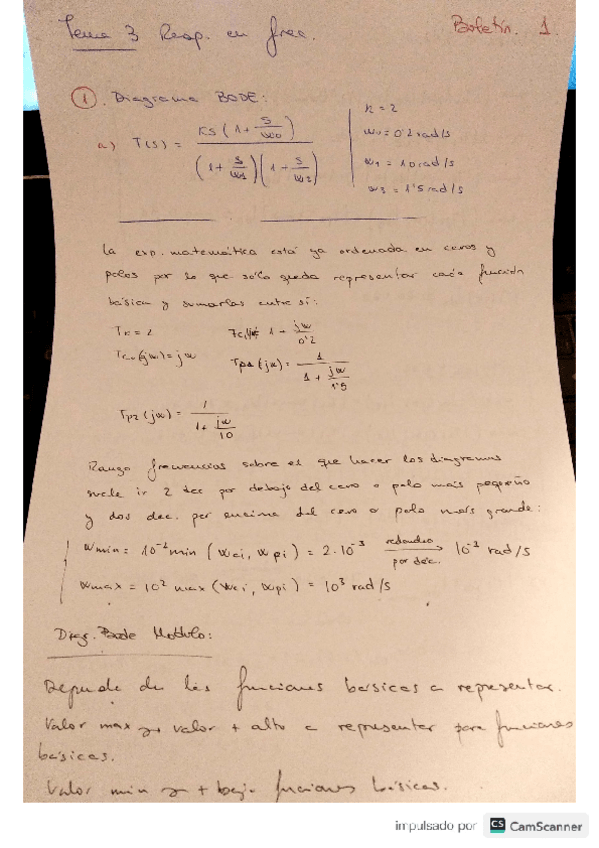 Tema 3 Resp. en frec. Boletín. 1.
① Diagrama BODE:
a) T(s) = KS (1 + s/w0) / (1 + s/w1)(1 + s/w3)
k = 2
w0 = 0'2 rad/s
w1 = 10 rad/s
w3 = 1'5 rad/s
La exp. matemática está ya ordenada en ceros y
polos por lo que sólo queda representar cada función
básica y sumarlas entre sí:
Tk = 2 1 + jw/0'2
(jw) = jw Tp1 (jw) = 1 / (1 + jw/1'5)
Tp2 (jw) = 1 / (1 + jw/10)
Rango frecuencias sobre el que hacer los diagramas
suele ir 2 dec por debajo del cero o polo más pequeño
y dos dec. por encima del cero o polo más grande:
wmin = 10⁻² min (wci, wpi) = 2·10⁻³ redondeo por déc. → 10⁻³ rad/s
wmax = 10² max (wci, wpi) = 10³ rad/s
Diag. Bode Modulo:
Depende de las funciones básicas a representar.
Valor max → valor + alto a representar para funciones
básicas.
Valor min → + bajo funciones básicas.
impulsado por CS CamScanner